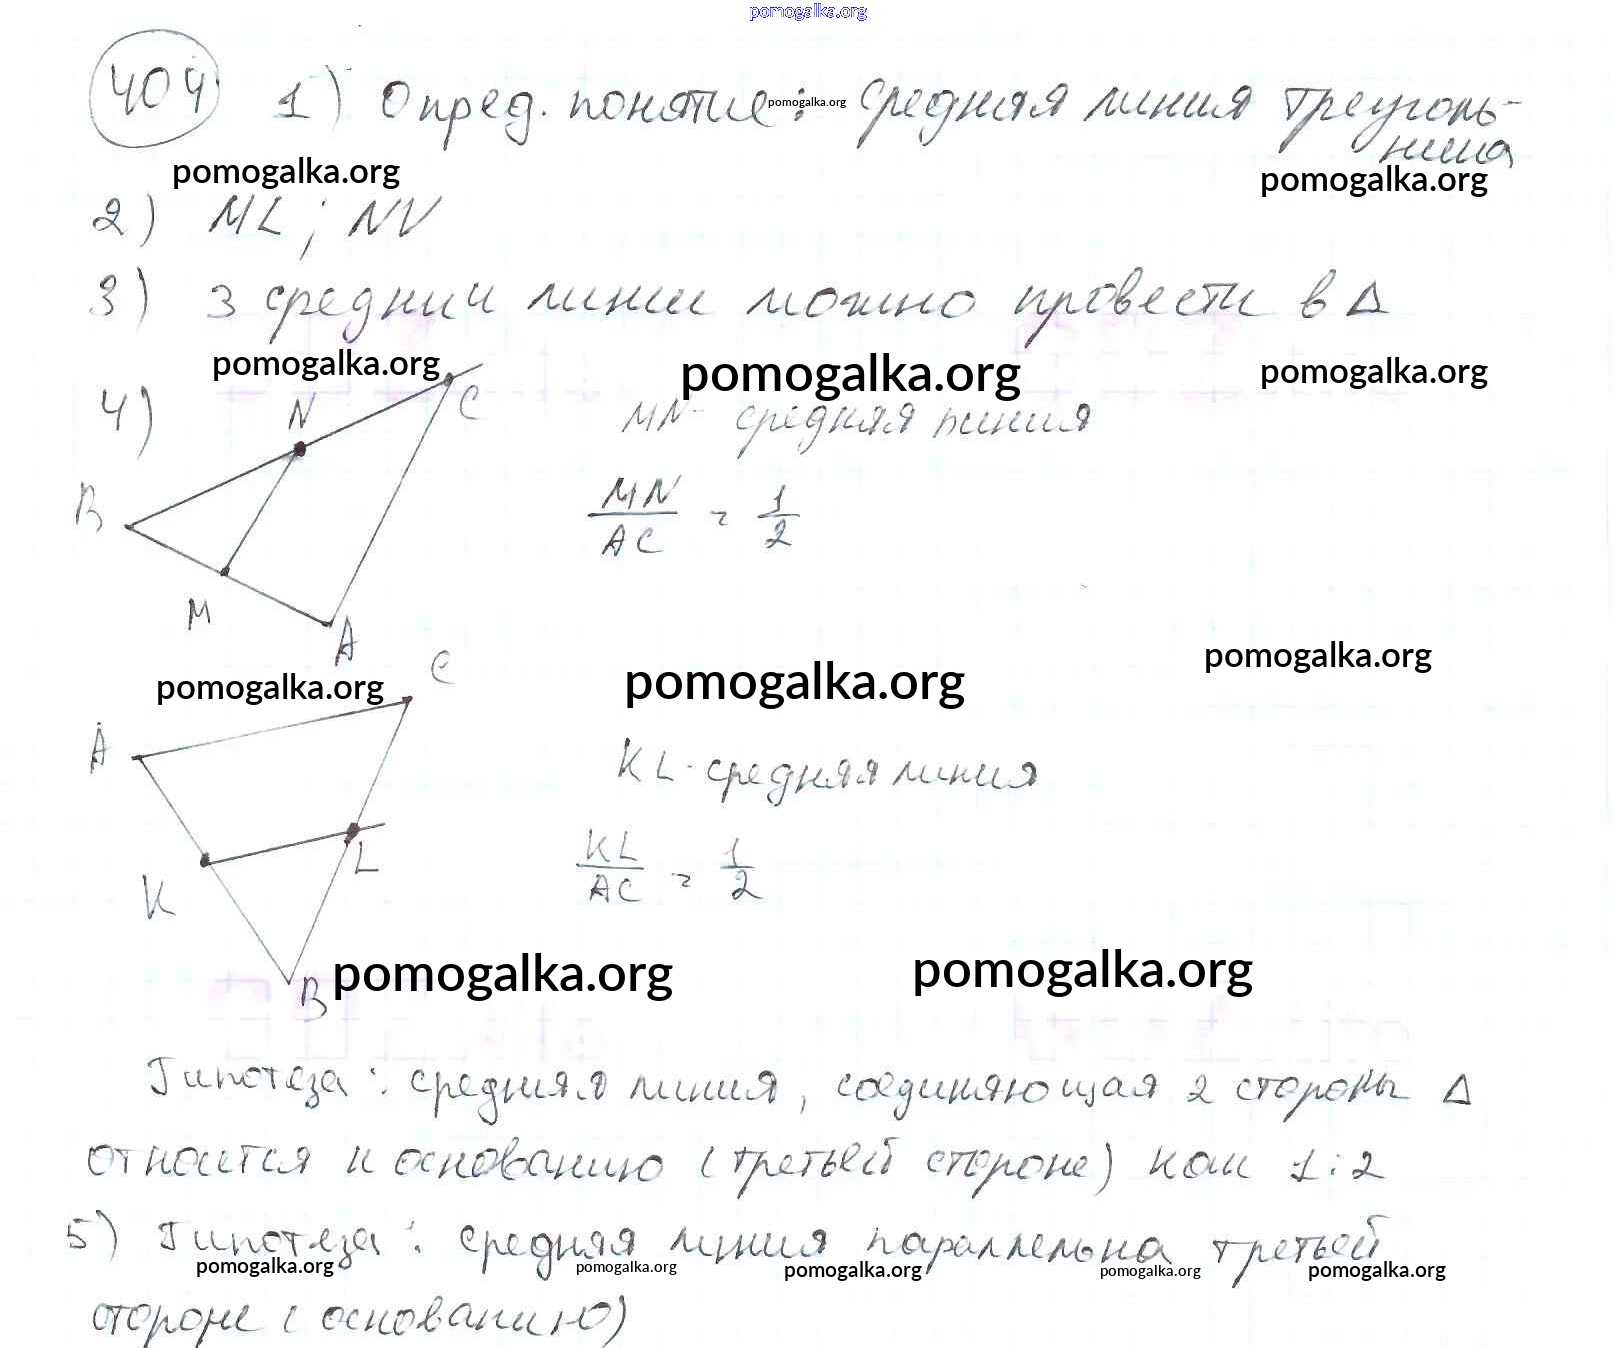 pomogalka.org
404 1) Опред. понятие: pomogalka.org средняя линия треуголь-
ника
pomogalka.org pomogalka.org
2) ML; NV
3) 3 средних линии можно провести в Δ
pomogalka.org pomogalka.org pomogalka.org
4) N C MN - средняя линия
B MN/AC = 1/2
M
A
pomogalka.org
C
pomogalka.org pomogalka.org
A KL - средняя линия
L KL/AC = 1/2
K
pomogalka.org pomogalka.org
B
Гипотеза: средняя линия, соединяющая 2 стороны Δ
относится к основанию (третьей стороне) как 1:2
5) Гипотеза: средняя линия параллельна третьей
pomogalka.org pomogalka.org pomogalka.org pomogalka.org pomogalka.org
стороне (основанию)